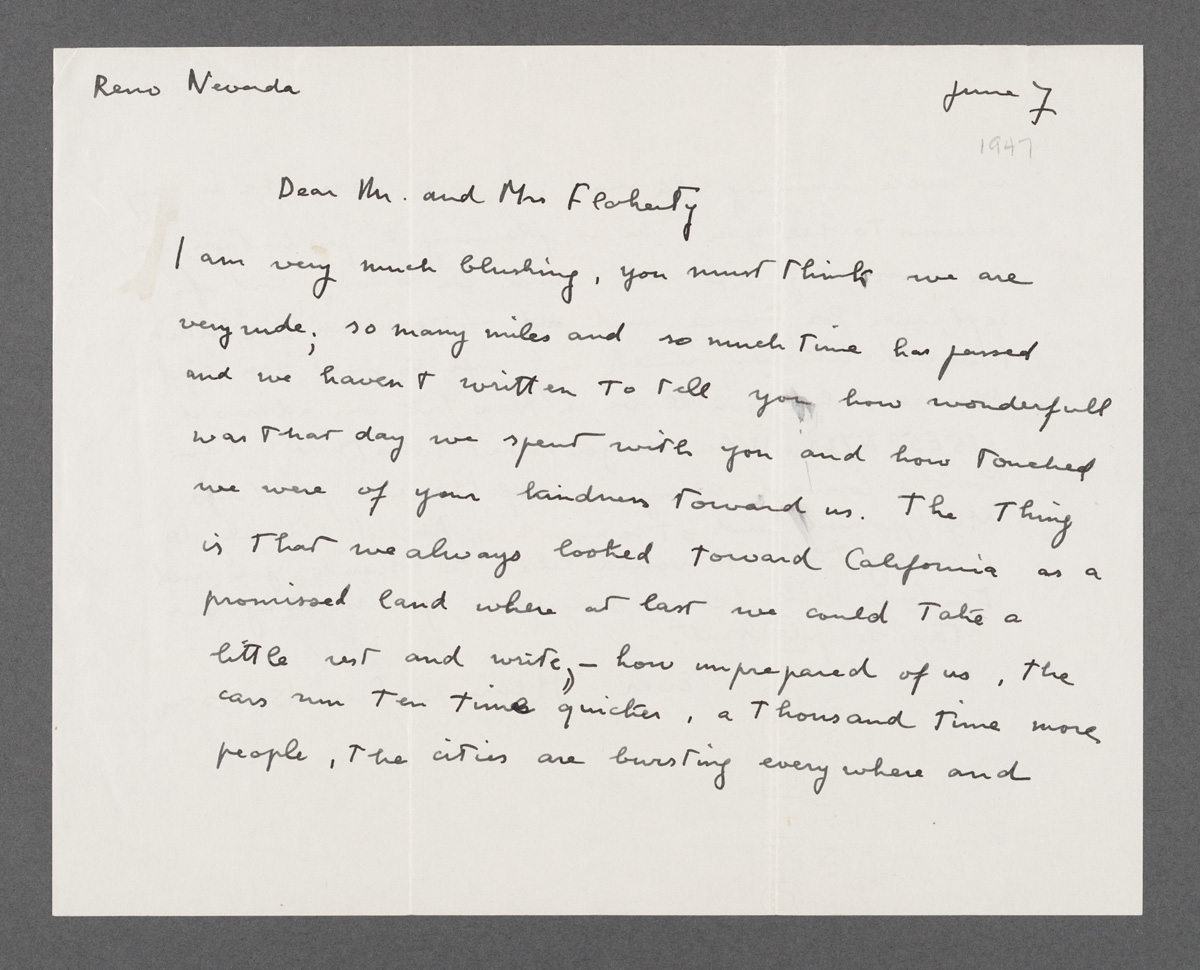 Reno Nevada
June 7
1947
Dear Mr. and Mrs Flaherty
I am very much blushing, you must think we are
very rude; so many miles and so much time has passed
and we haven't written to tell you how wonderfull
was that day we spent with you and how touched
we were of your kindness toward us. The thing
is that we always looked toward California as a
promissed land where at last we could take a
little rest and write; – how unprepared of us, the
cars run ten time quicker, a thousand time more
people, the cities are bursting everywhere and